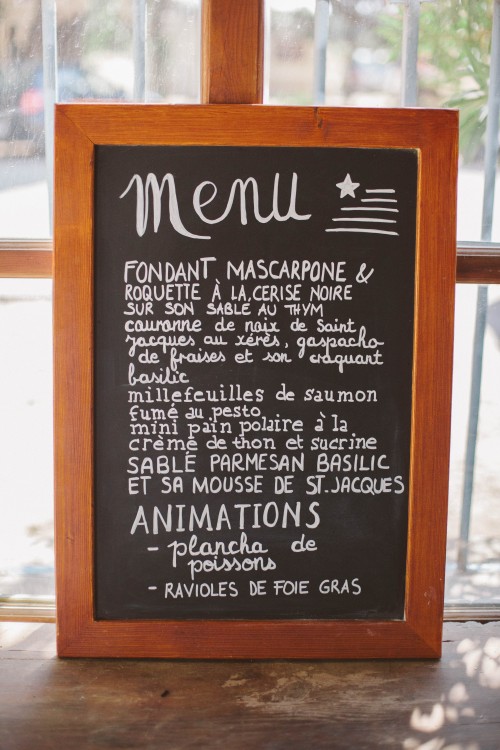 Menu
FONDANT MASCARPONE &
ROQUETTE À LA CERISE NOIRE
SUR SON SABLÉ AU THYM
couronne de noix de Saint
jacques au xérès, gaspacho
de fraises et son craquant
basilic
millefeuilles de saumon
fumé au pesto
mini pain polaire à la
crème de thon et sucrine
SABLÉ PARMESAN BASILIC
ET SA MOUSSE DE ST.JACQUES
ANIMATIONS
- plancha de
poissons
- RAVIOLES DE FOIE GRAS